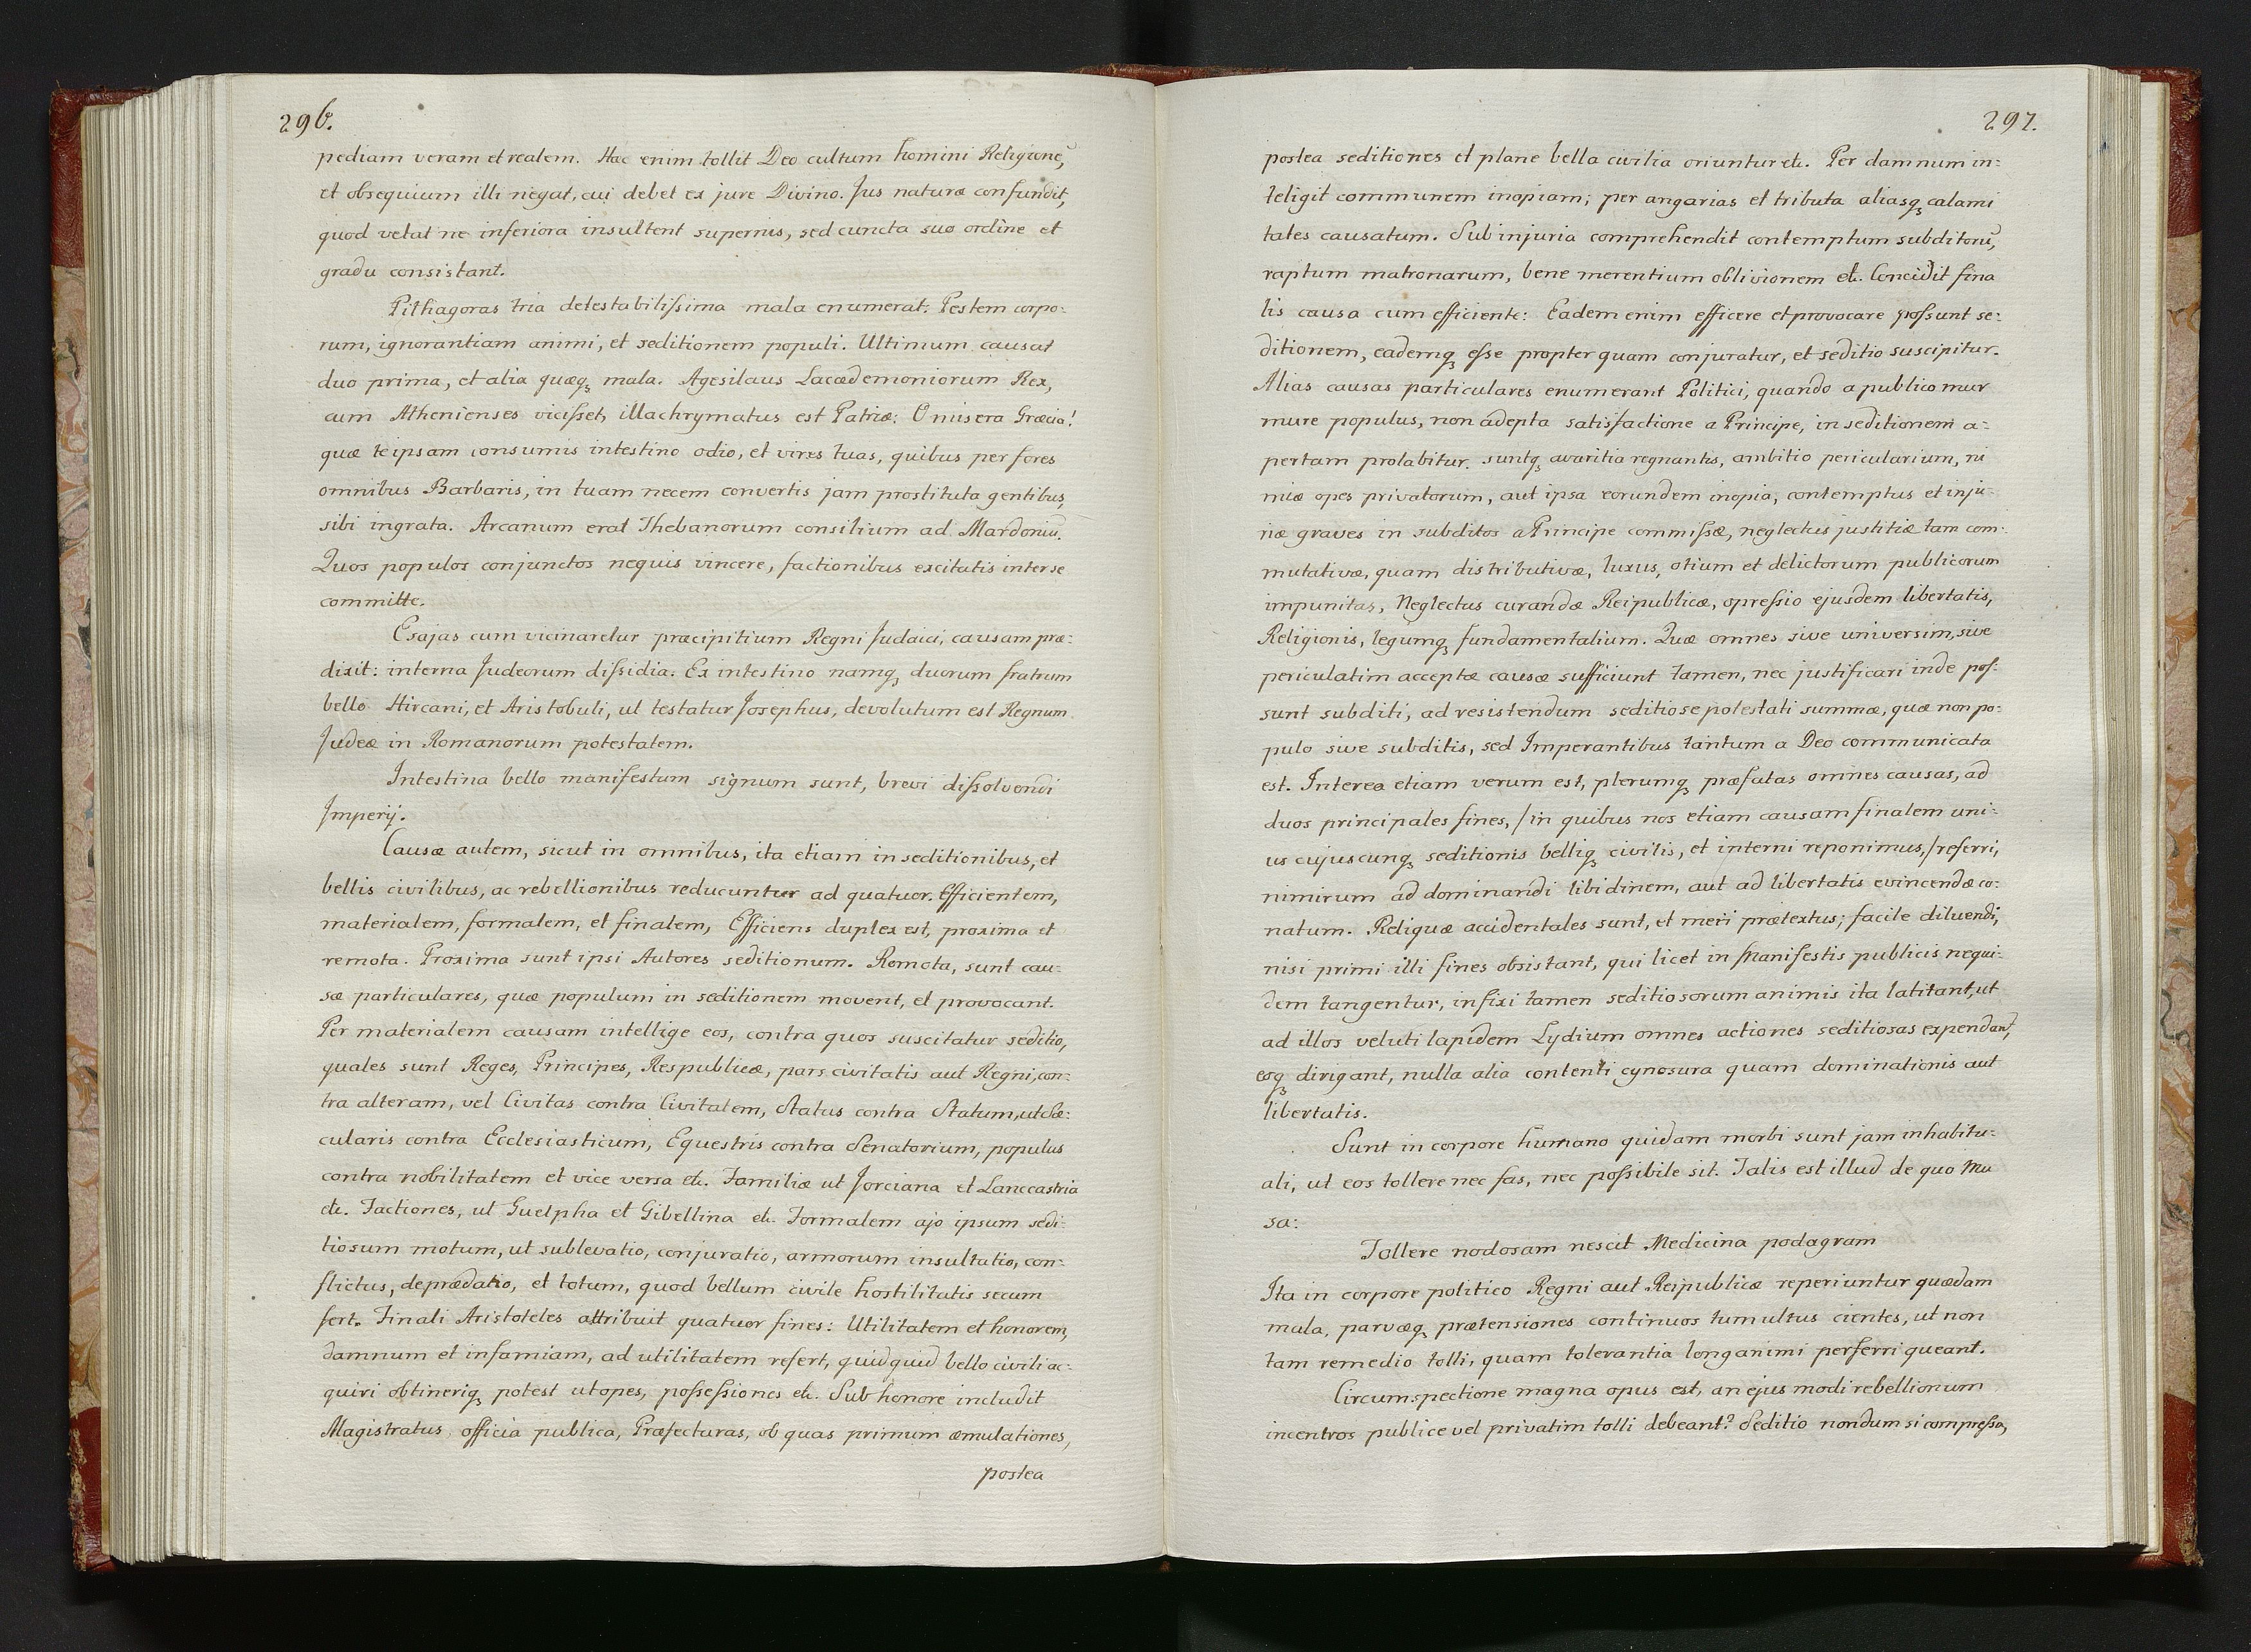 296.
pediam veram et realem. Hac enim tollit Deo cultum homini Religionē,
et obsequium illi negat, cui debet ex jure Divino. Jus naturæ confundit,
quod vetat ne inferiora insultent supernis, sed cuncta suo ordine et
gradu consistant.
Pithagoras tria detestabilissima mala enumerat: Pestem corpo:
rum, ignorantiam animi, et seditionem populi. Ultimum causat
duo prima, et alia quæq3 mala. Agesilaus Lacædemoniorum Rex,
cum Athenienses vicisset, illachrymatus est Patriæ: O misera Græcia!
quæ te ipsam consumis intestino odio, et vires tuas, quibus per fores
omnibus Barbaris, in tuam necem convertis jam prostituta gentibus,
sibi ingrata. Arcanum erat Thebanorum consilium ad Mardoniū.
Quos populos conjunctos nequis vincere, factionibus excitatis inter se
committe.
Esajas cum vicinaretur præcipitium Regni Judaici, causam præ:
dixit: interna Judeorum dissidia. Ex intestino namq3 duorum fratrum
bello Hircani, et Aristobuli, ut testatur Josephus, devolutum est Regnum
Judeæ in Romanorum potestatem.
Intestina bello manifestum signum sunt, brevi dissolvendi
Imperij.
Causæ autem, sicut in omnibus, ita etiam in seditionibus, et
bellis civilibus, ac rebellionibus reducuntur ad quatuor. Efficientem,
materialem, formalem, et finalem, Efficiens duplex est, proxima et
remota. Proxima sunt ipsi Autores seditionum. Remota, sunt cau:
sæ particulares, quæ populum in seditionem movent, et provocant.
Per materialem causam intellige eos, contra quos suscitatur seditio,
quales sunt Reges, Principes, Respublicæ, pars civitatis aut Regni, con:
tra alteram, vel Civitas contra Civitatem, Status contra Statum, ut Sæ:
cularis contra Ecclesiasticum, Equestris contra Senatorium, populus
contra nobilitatem et vice versa etc. Familiæ ut Jorciana et Lanccastria
etc. Factiones, ut Guelpha et Gibellina etc. Formalem ajo ipsum sedi:
tiosum motum, ut sublevatio, conjuratio, armorum insultatio, con:
flictus, deprædatio, et totum, quod bellum civile hostilitatis secum
fert. Finali Aristoteles attribuit quatuor fines: Utilitatem et honorem,
damnum et infamiam, ad utilitatem refert, quidquid bello civili ac:
quiri obtineriq3 potest ut opes, possessiones etc. Sub honore includit
Magistratus, officia publica, Præfecturas, ob quas primum æmulationes,
postea
297.
postea seditiones et plane bella civilia oriuntur etc. Per damnum in:
teligit communem inopiam; per angarias et tributa aliasq3 calami
tates causatum. Sub injuria comprehendit contemptum subditorū,
raptum matronarum, bene merentium oblivionem etc. Concidit fina
lis causa cum efficiente: Eadem enim efficere et provocare possunt se:
ditionem, eademq3 esse propter quam conjuratur, et seditio suscipitur.
Alias causas particulares enumerant Politici, quando a publico mur
mure populus, non adepta satisfactione a Principe, in seditionem a:
pertam prolabitur. suntq3 avaritia regnantis, ambitio pericularium, ni
miæ opes privatorum, aut ipsa eorundem inopia, contemptus et inju:
riæ graves in subditos a Principe commissæ, neglectus justitiæ tam com:
mutativæ, quam distributivæ, luxus, otium et delictorum publicorum
impunitas, Neglectus curandæ Reipublicæ, opressio ejusdem libertatis,
Religionis, legumq3 fundamentalium. Quæ omnes sive universim, sive
periculatim acceptæ causæ sufficiunt tamen, nec justificari inde pos:
sunt subditi, ad resistendum seditiose potestati summæ, quæ non po:
pulo sive subditis, sed Imperantibus tantum a Deo communicata
est. Interea etiam verum est, plerumq3 præfatas omnes causas, ad
duos principales fines, /in quibus nos etiam causam finalem uni:
us cujuscunq3 seditionis belliq3 civilis, et interni reponimus,/ referri,
nimirum ad dominandi libidinem, aut ad libertatis evincendæ co:
natum. Reliquæ accidentales sunt, et meri prætextus; facile diluendi,
nisi primi illi fines obsistant, qui licet in Manifestis publicis nequi:
dem tangentur, infixi tamen seditiosorum animis ita latitant, ut
ad illos veluti lapidem Lydium omnes actiones seditiosas expendant,
eoq3 dirigant, nulla alia contenti cynosura quam dominationis aut
libertatis.
Sunt in corpore humano quidam morbi sunt jam inhabitu:
ali, ut eos tollere nec fas, nec possibile sit. Talis est illud de quo Mu
sa:
Tollere nodosam nescit Medicina podagram
Ita in corpore politico Regni aut Reipublicæ reperiuntur quædam
mala, parvæq3 prætensiones continuos tumultus cientes, ut non
tam remedio tolli, quam tolerantia longanimi perferri queant.
Circumspectione magna opus est, an ejus modi rebellionum
incentros publice vel privatim tolli debeant? Seditio nondum si compressa,